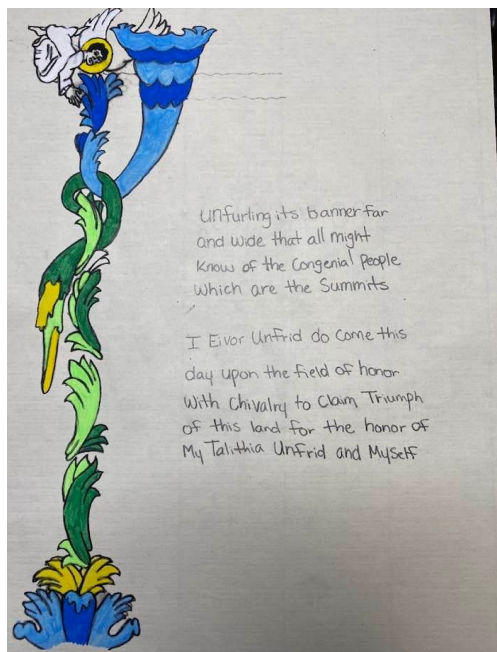 Unfurling its banner far
and wide that all might
Know of the Congenial People
Which are the Summits
I Eivor Unfrid do Come this
day upon the field of honor
With Chivalry to Claim Triumph
of this land for the honor of
My Talithia Unfrid and Myself